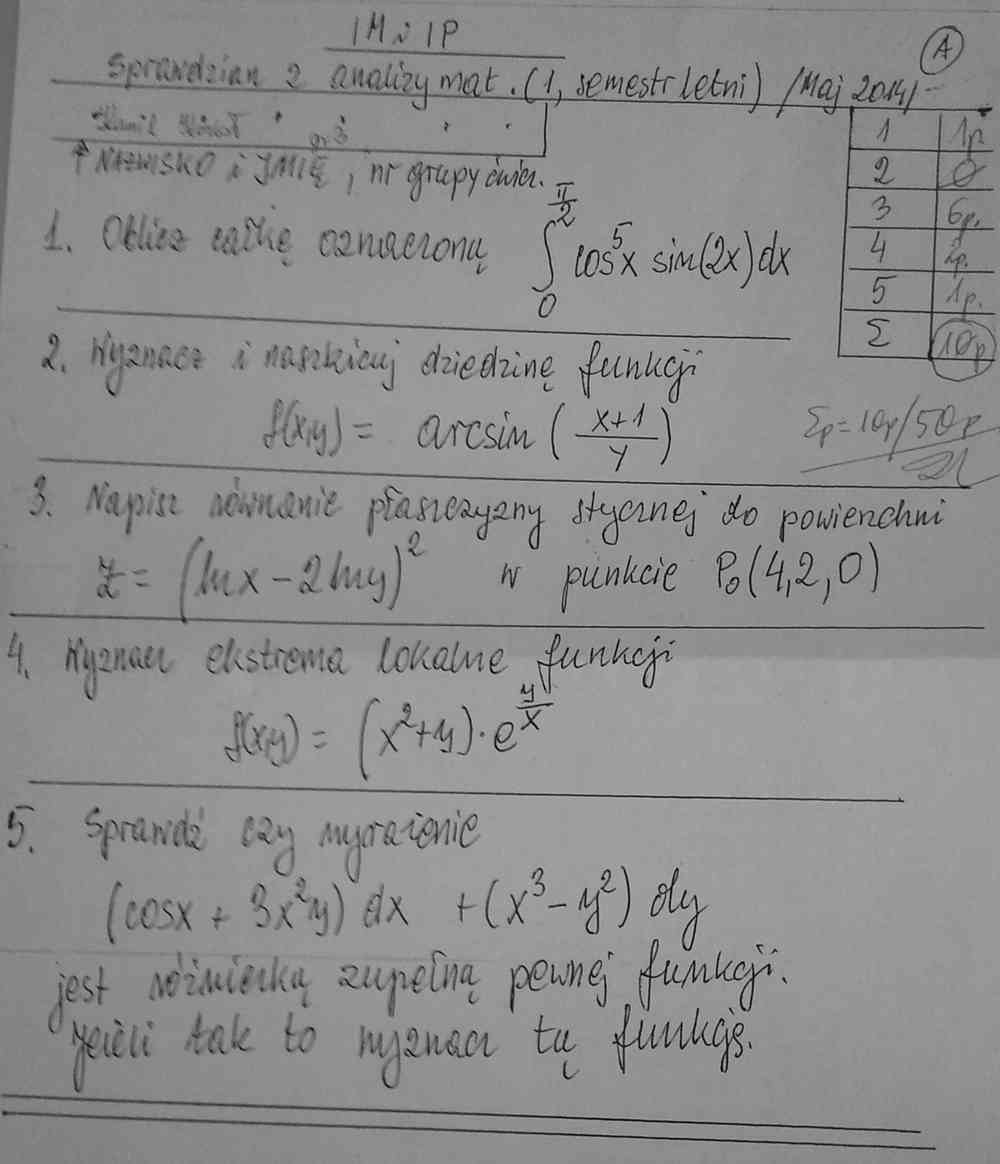 IM i IP
A
Sprawdzian z analizy mat. (1, semestr letni) /Maj 2014/-
gr 3
↑ NAZWISKO i IMIĘ, nr grupy ćwicz.
1 1p
2 0
3 6p.
4 2p.
5 1p.
Σ 10p
Σp = 10p/50p
1. Oblicz całkę oznaczoną ∫₀^(π/2) cos⁵x sin(2x) dx
2. Wyznacz i naszkicuj dziedzinę funkcji
f(x,y) = arcsin ( (x+1)/y )
3. Napisz równanie płaszczyzny stycznej do powierzchni
z = (lnx - 2lny)² w punkcie P₀(4,2,0)
4. Wyznacz ekstrema lokalne funkcji
f(x,y) = (x²+y)·e^(y/x)
5. Sprawdź czy wyrażenie
(cosx + 3x²y) dx + (x³ - y²) dy
jest różniczką zupełną pewnej funkcji.
Jeżeli tak to wyznacz tę funkcję.